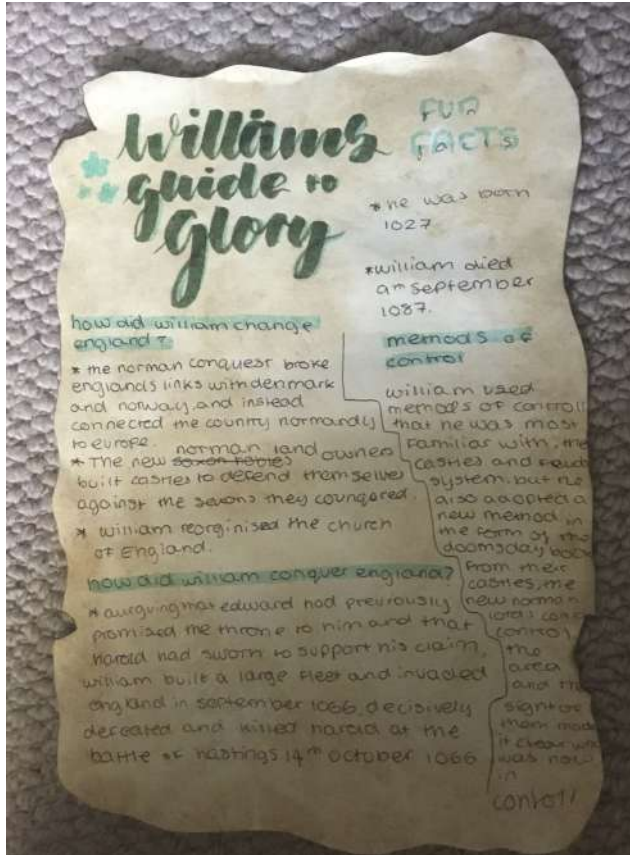 williams
guide to
Glory
FUN
FACTS
* he was born
1027
* william died
9th september
1087.
how did william change
england?
* the norman conquest broke
englands links with denmark
and norway, and instead
connected the country normandy
to europe.
* The new norman land owners
built castles to defend themselves
against the saxons they counqered.
* william reorginised the church
OF England.
how did william conquer england?
* aurguing that edward had previously
promised the throne to him and that
Harold had sworn to support his claim,
william built a large fleet and invaded
england in september 1066, decisively
defeated and killed harold at the
battle of hastings 14th october 1066
methods of
control
william used
methods of controll
that he was most
familiar with: the
castles and feudal
system. but he
also adopted a
new method in
the form of the
doomsday book
From their
castles, the
new norman
lord:
control
the
area
and the
sight of
them made
it clear who
was now
in
control!